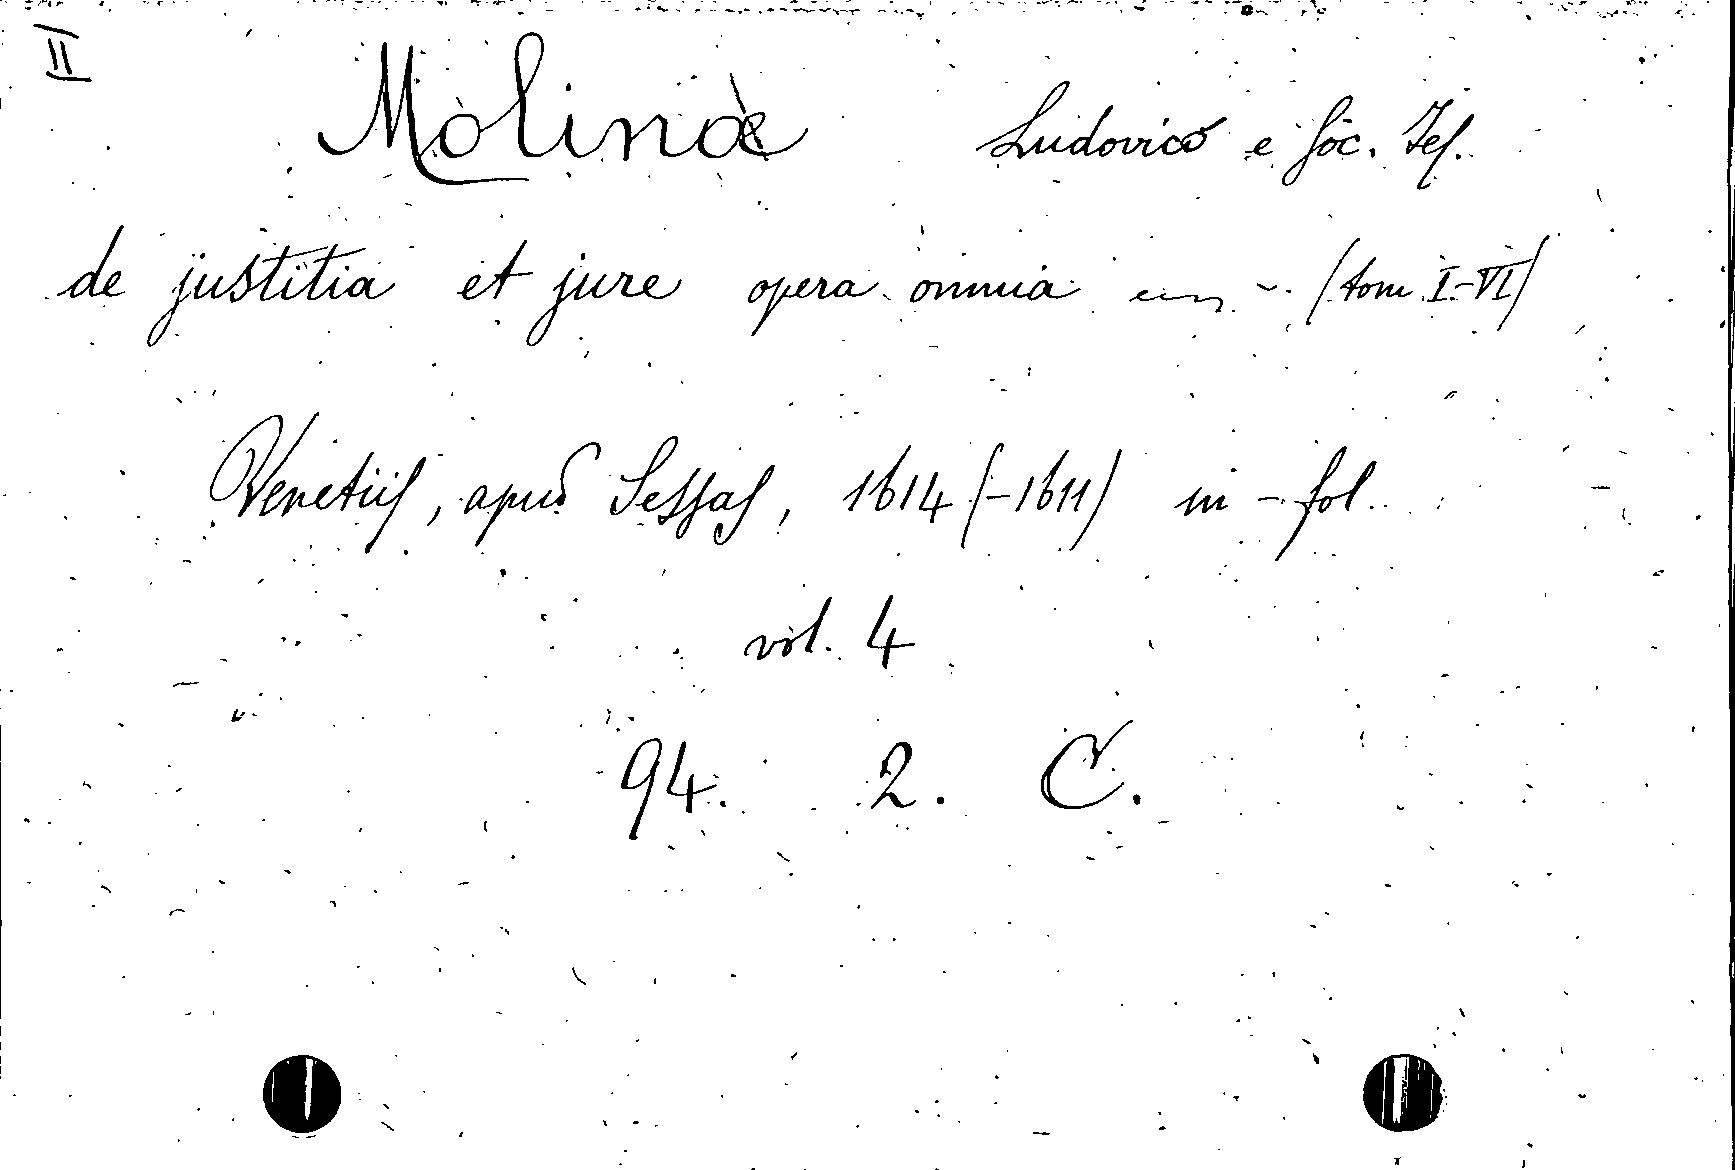 II
Molina Ludovico e Soc. Jes.
de justitia et jure opera omnia (tom I-VI)
Venetiis, apud Sessas, 1614 (-1611) in-fol.
vol. 4
94. 2. C.